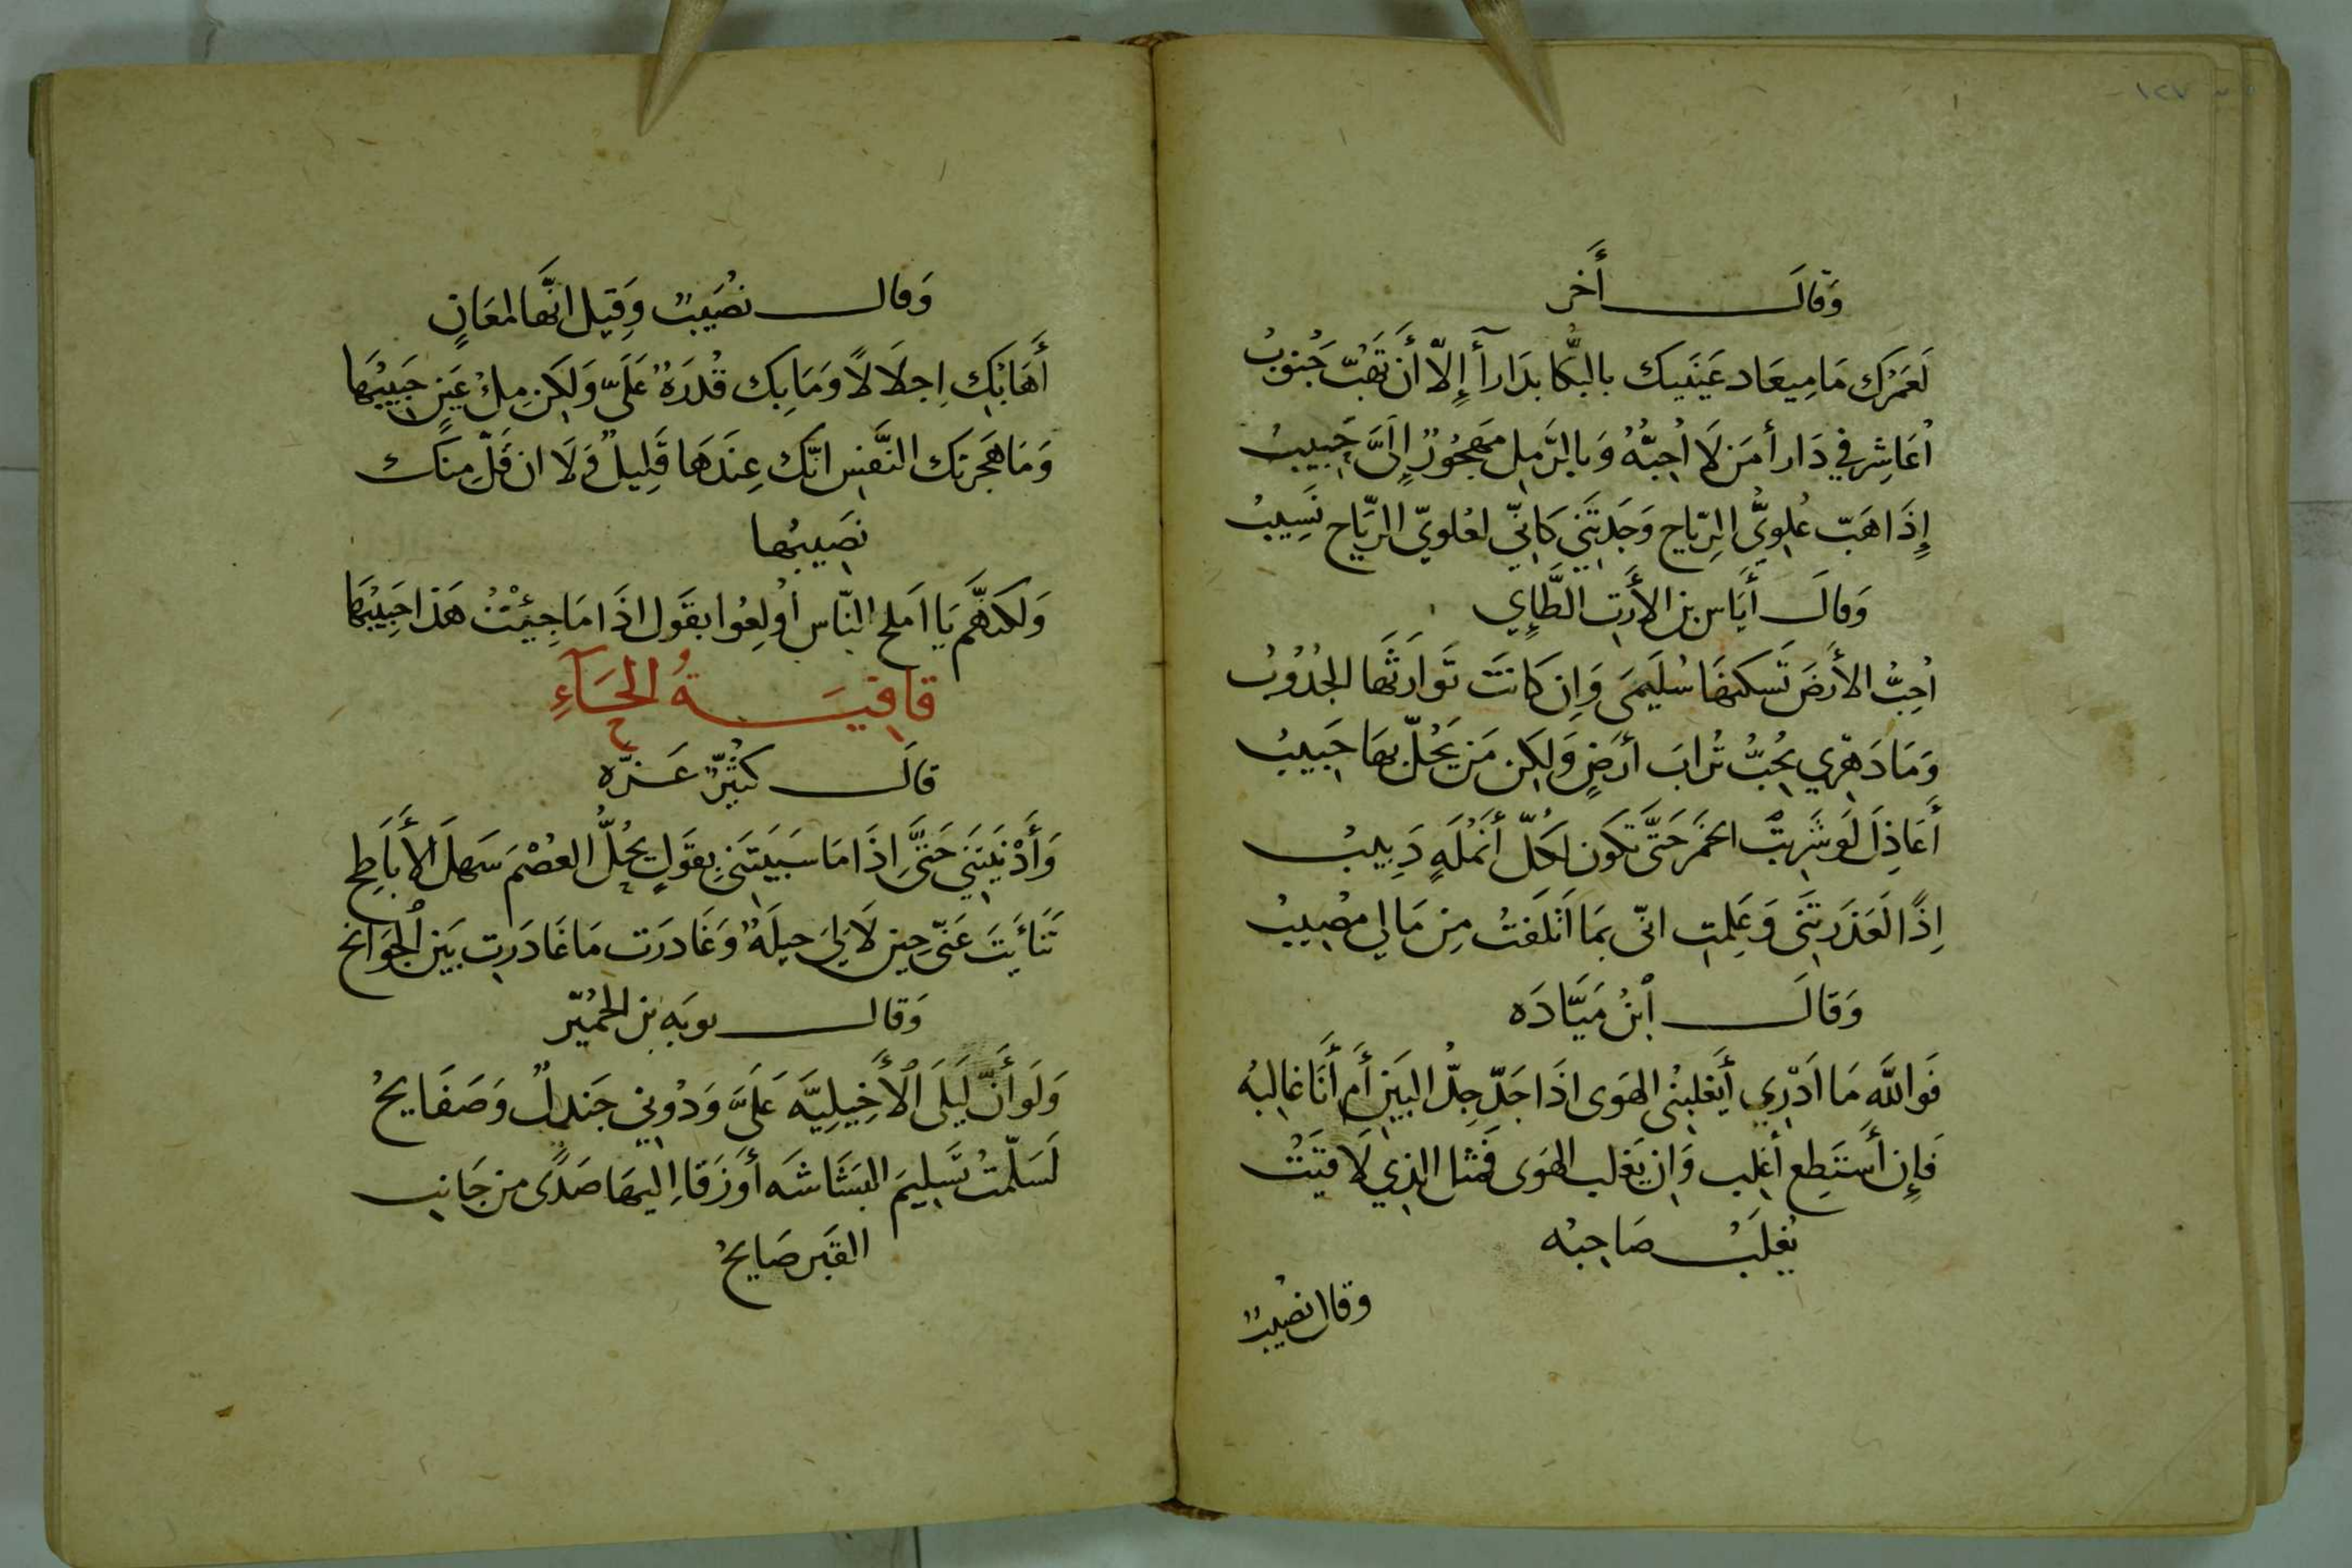 ١٢٧
وَقَالَ أَخر
لَعَمْرُك مَا مِيعَاد عَيْنَيك بالبُكَا بدَارأَ إِلّا أَن تَهُبّ جُنوبُ
اُعَاشِر في دَارأَ مَن لَا اُحِبُّهُ وَبالرَّمل مَهجُورٌ إِلَيَّ حَبِيبُ
إِذَا هَبّ عُلوِيُّ الرِّيَاح وَجَدتَني كَأنّي لعُلوِيّ الرِّيَاح نَسِيبُ
وَقالَ أيَاس بن الأَرَت الطَّاِي
اُحِبُّ الأَرضَ تَسكنهَا سُلَيمَى وَإِن كَانَت تَوَارَثَهَا الجُدُوبُ
وَمَا دَهري بحُبّ تُرابَ أَرضٍ وَلكِن مَن يَحُلّ بهَا حَبيبُ
أَعَاذِلَ لَو شَربتُ الخمَر حَتَّى تكون لكُلّ أَنمُلَهٍ دَبِيبُ
إِذًا لَعَذَرتَنى وَعَلِمت انّى بمَا اَتلَفتُ مِن مَالي مصُيبُ
وَقَالَ اُبنُ مَيَّادَه
فَوَاللّه مَا اَدْرِي أَيَغلبُنى الهَوى اذَا جَدّ جِدُّ البَينِ أَم أَنَا غالبُه
فَإِن أَستَطِع أَغلب وَإِن يَغلب الهَوى فَمثل الذي لَاقَيتُ
يُغلَبُ صَاحبُه
وقال نصُيبٌ
وَقال نصُيَبٌ وَقِيل انَّهَا لمعَانٍ
أَهَابُك اِجلَالًا وَمَا بك قُدرَةٌ عَلَيّ وَلكِن مِلْ عَينٍ حَبيبُهَا
وَمَا هَجَرتك النَّفس انّك عِندَهَا قَلِيلٌ وَلَا ان قَلّ مِنك
نصَيبُها
وَلكنَهَّم يَا اَملحَ النّاس أُولِعُوا بقَول اذَا مَا جِيئْتُ هَذَا حَبِيبُهَا
قافِيَةُ الحَآءِ
قالَ كُثَيّرُ عَزّه
وَأَدْنَيتَنِي حَتَّى اِذَا مَا سَبَيتَنِي بقَولٍ يحُلُّ العُصْمَ سَهلَ الأَبَاطِح
تَنَاءَيتَ عَنّى حِين لَا لِيَ حيلَهٌ وَغَادرَت مَا غَادَرت بَين اُلجوَانح
وَقال توبَه بن الحُميّر
وَلَو أَنّ لَيلَى اُلأَخِيلِيَّه عَلَيَّ وَدُوني جَندلٌ وَصَفَايحُ
لَسَلّمتُ تَسلِيمَ البَشَاشَه أَو زَقَا اِليهَا صَدًى من جَانب
القَبر صَايحُ